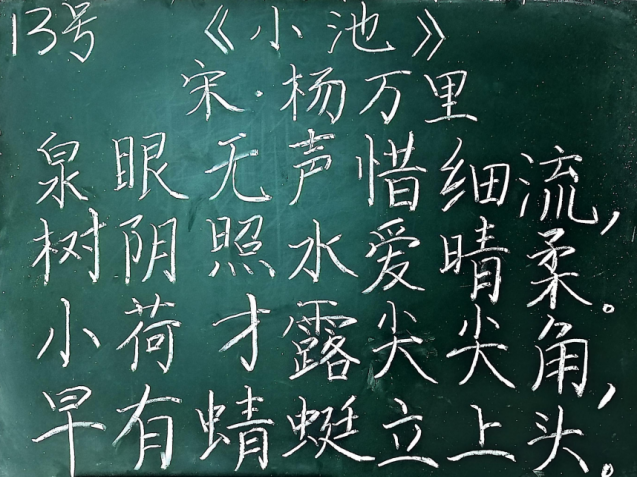 13号 《小池》
宋·杨万里
泉眼无声惜细流,
树阴照水爱晴柔。
小荷才露尖尖角,
早有蜻蜓立上头。